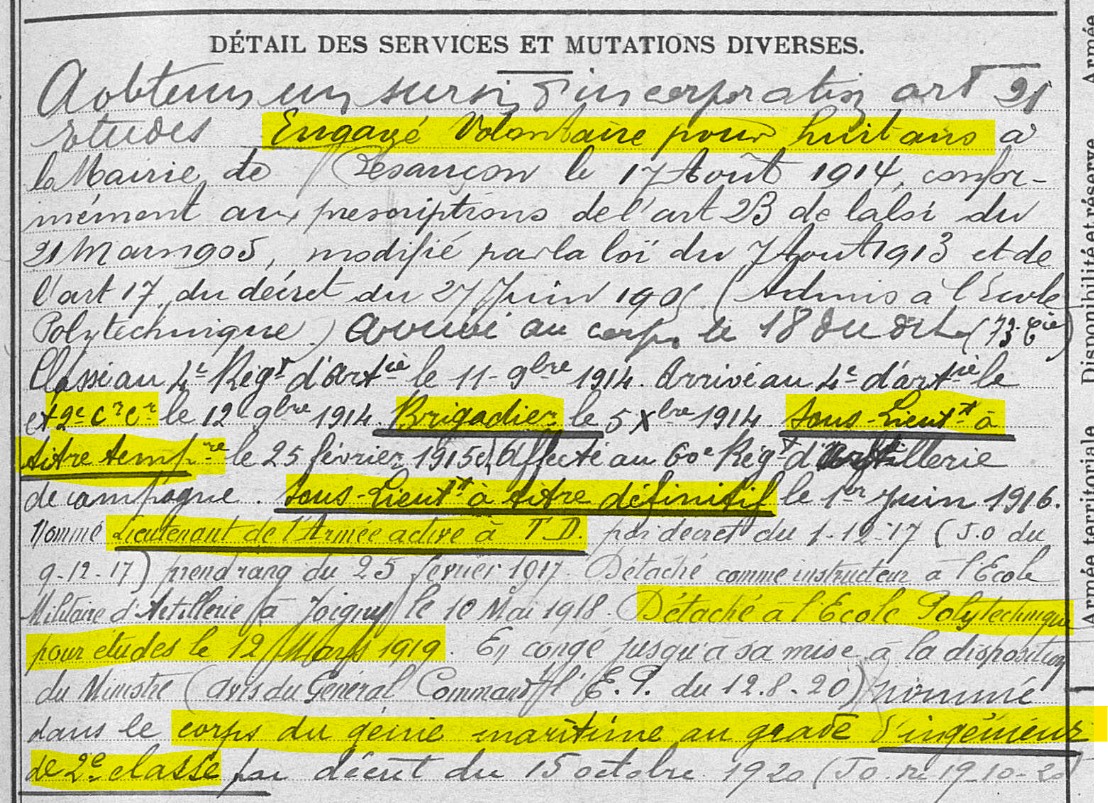 DÉTAIL DES SERVICES ET MUTATIONS DIVERSES.
A obtenu un sursis d'incorporation art 21
Etudes Engagé Volontaire pour huit ans à
la Mairie de Besançon le 17 Août 1914, confor-
mément aux prescriptions de l'art 23 de la loi du
21 Mars 1905, modifié par la loi du 7 Aout 1913 et de
l'art 17 du décret du 27 Juin 190 (Admis à l'Ecole
Polytechnique) arrivé au corps le 18 du dit
Classé au 4e Régt d'Artie le 11-9bre 1914. Arrivé au 4e d'artie le
et 2e cr cr le 12 9bre 1914. Brigadier le 5 Xbre 1914 Sous-Lieutt à
titre tempre le 25 février 1915 Affecté au 60e Régt d'artillerie
de campagne. Sous-Lieutt à titre définitif le 1er Juin 1916.
Nommé Lieutenant de l'Armée active à T.D. par décret du 1-12-17 (J.O du
9-12-17) prend rang du 25 février 1917. Détaché comme instructeur à l'Ecole
Militaire d'Artillerie à Joigny le 10 Mai 1918. Détaché à l'Ecole Polytechnique
pour études le 12 Mars 1919. En congé jusqu'à sa mise à la disposition
du Ministre (avis du Général Commandt l'E.P. du 12.8-20) nommé
dans le corps du génie maritime au grade d'ingénieur
de 2e classe par décrit du 15 octobre 1920 (J.O. 19-10-20)
Armée
Disponibilité et réserve
Armée territoriale